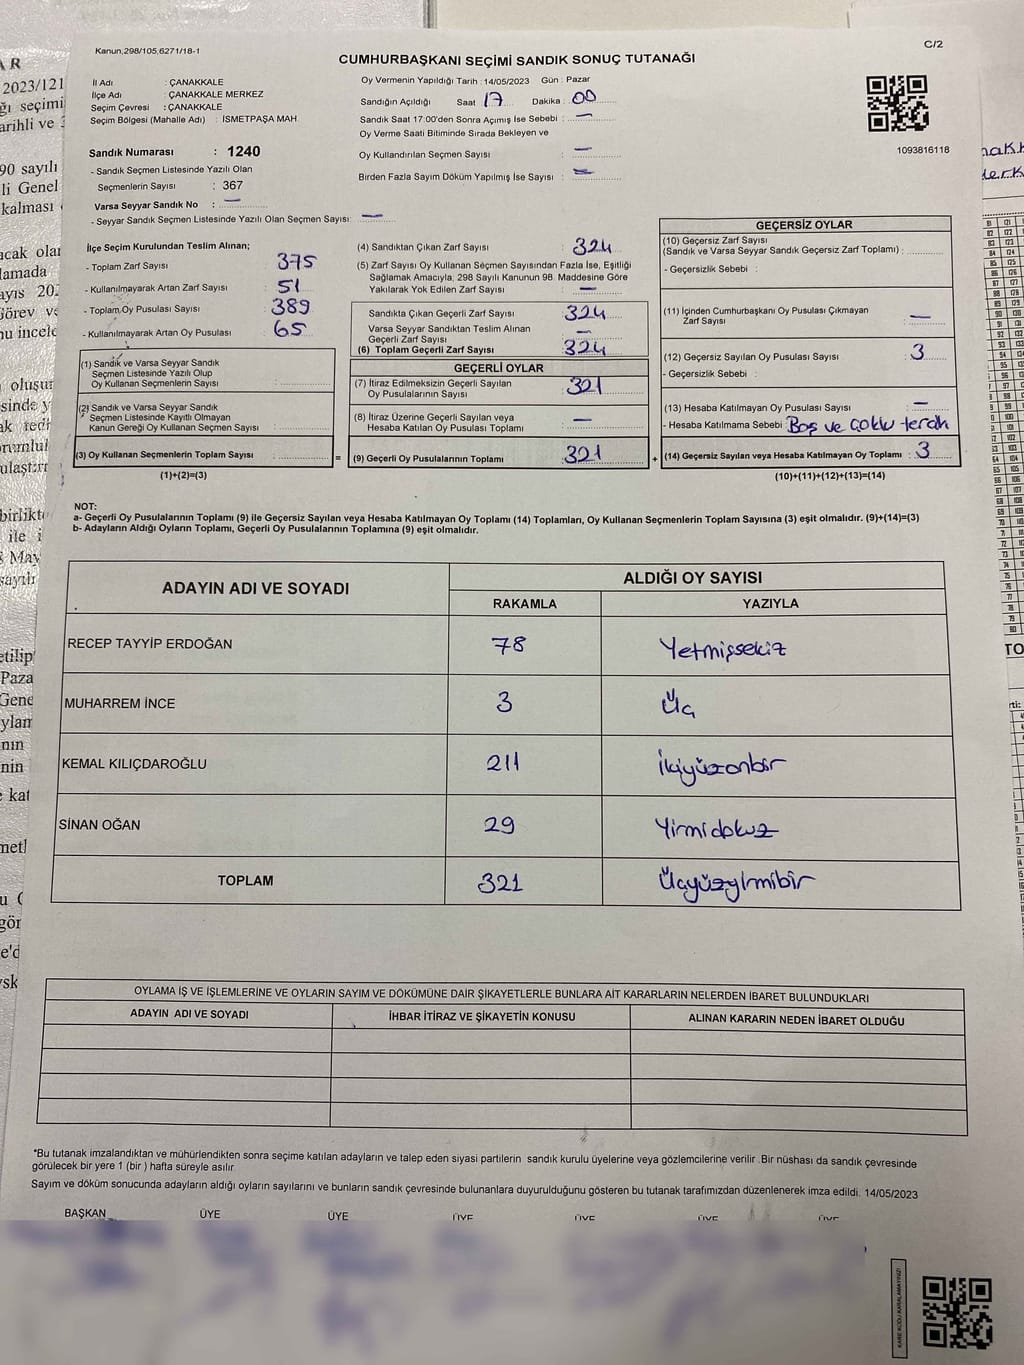 Kanun,298/105,6271/18-1
C/2
CUMHURBAŞKANI SEÇİMİ SANDIK SONUÇ TUTANAĞI
İl Adı : ÇANAKKALE
İlçe Adı : ÇANAKKALE MERKEZ
Seçim Çevresi : ÇANAKKALE
Seçim Bölgesi (Mahalle Adı) : İSMETPAŞA MAH.
Oy Vermenin Yapıldığı Tarih : 14/05/2023 Gün : Pazar
Sandığın Açıldığı Saat 17 Dakika : 00
Sandık Saat 17:00'den Sonra Açımış İse Sebebi : —
Oy Verme Saati Bitiminde Sırada Bekleyen ve
Oy Kullandırılan Seçmen Sayısı : —
Birden Fazla Sayım Döküm Yapılmış İse Sayısı : —
1093816118
Sandık Numarası : 1240
- Sandık Seçmen Listesinde Yazılı Olan
Seçmenlerin Sayısı : 367
Varsa Seyyar Sandık No : —
- Seyyar Sandık Seçmen Listesinde Yazılı Olan Seçmen Sayısı: —
İlçe Seçim Kurulundan Teslim Alınan;
- Toplam Zarf Sayısı : 375
- Kullanılmayarak Artan Zarf Sayısı : 51
- Toplam Oy Pusulası Sayısı : 389
- Kullanılmayarak Artan Oy Pusulası : 65
(1) Sandık ve Varsa Seyyar Sandık
Seçmen Listesinde Yazılı Olup
Oy Kullanan Seçmenlerin Sayısı :
(2) Sandık ve Varsa Seyyar Sandık
Seçmen Listesinde Kayıtlı Olmayan
Kanun Gereği Oy Kullanan Seçmen Sayısı :
(3) Oy Kullanan Seçmenlerin Toplam Sayısı :
(1)+(2)=(3)
=
(4) Sandıktan Çıkan Zarf Sayısı : 324
(5) Zarf Sayısı Oy Kullanan Seçmen Sayısından Fazla İse, Eşitliği
Sağlamak Amacıyla, 298 Sayılı Kanunun 98. Maddesine Göre
Yakılarak Yok Edilen Zarf Sayısı : —
Sandıkta Çıkan Geçerli Zarf Sayısı : 324
Varsa Seyyar Sandıktan Teslim Alınan
Geçerli Zarf Sayısı : —
(6) Toplam Geçerli Zarf Sayısı : 324
GEÇERLİ OYLAR
(7) İtiraz Edilmeksizin Geçerli Sayılan
Oy Pusulalarının Sayısı : 321
(8) İtiraz Üzerine Geçerli Sayılan veya
Hesaba Katılan Oy Pusulası Toplamı : —
(9) Geçerli Oy Pusulalarının Toplamı : 321
+
GEÇERSİZ OYLAR
(10) Geçersiz Zarf Sayısı
(Sandık ve Varsa Seyyar Sandık Geçersiz Zarf Toplamı) :
- Geçersizlik Sebebi :
(11) İçinden Cumhurbaşkanı Oy Pusulası Çıkmayan
Zarf Sayısı : —
(12) Geçersiz Sayılan Oy Pusulası Sayısı : 3
- Geçersizlik Sebebi :
(13) Hesaba Katılmayan Oy Pusulası Sayısı : —
- Hesaba Katılmama Sebebi : Boş ve çoklu tercih
(14) Geçersiz Sayılan veya Hesaba Katılmayan Oy Toplamı : 3
(10)+(11)+(12)+(13)=(14)
NOT:
a- Geçerli Oy Pusulalarının Toplamı (9) ile Geçersiz Sayılan veya Hesaba Katılmayan Oy Toplamı (14) Toplamları, Oy Kullanan Seçmenlerin Toplam Sayısına (3) eşit olmalıdır. (9)+(14)=(3)
b- Adayların Aldığı Oyların Toplamı, Geçerli Oy Pusulalarının Toplamına (9) eşit olmalıdır.
ADAYIN ADI VE SOYADI
ALDIĞI OY SAYISI
RAKAMLA YAZIYLA
RECEP TAYYİP ERDOĞAN 78 Yetmişsekiz
MUHARREM İNCE 3 Üç
KEMAL KILIÇDAROĞLU 211 İkiyüzonbir
SİNAN OĞAN 29 Yirmidokuz
TOPLAM 321 Üçyüzyirmibir
OYLAMA İŞ VE İŞLEMLERİNE VE OYLARIN SAYIM VE DÖKÜMÜNE DAİR ŞİKAYETLERLE BUNLARA AİT KARARLARIN NELERDEN İBARET BULUNDUKLARI
ADAYIN ADI VE SOYADI İHBAR İTİRAZ VE ŞİKAYETİN KONUSU ALINAN KARARIN NEDEN İBARET OLDUĞU
*Bu tutanak imzalandıktan ve mühürlendikten sonra seçime katılan adayların ve talep eden siyasi partilerin sandık kurulu üyelerine veya gözlemcilerine verilir .Bir nüshası da sandık çevresinde
görülecek bir yere 1 (bir ) hafta süreyle asılır.
Sayım ve döküm sonucunda adayların aldığı oyların sayılarını ve bunların sandık çevresinde bulunanlara duyurulduğunu gösteren bu tutanak tarafımızdan düzenlenerek imza edildi. 14/05/2023
BAŞKAN ÜYE ÜYE ÜYE ÜYE ÜYE ÜYE
KARE KODU KARALAMAYINIZ!